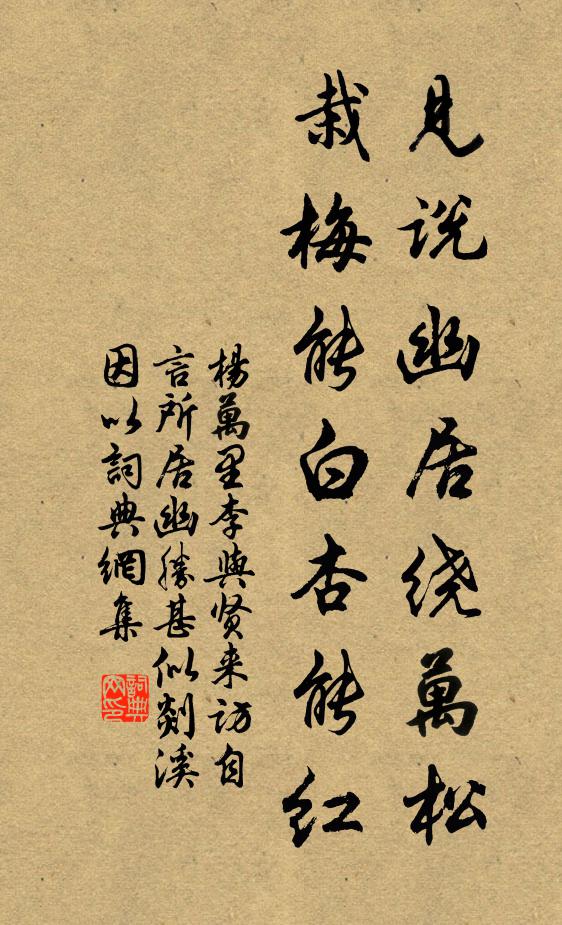 見説幽居绕萬松
栽梅能白杏能红
楊萬里李與贤来访自
言所居幽勝甚似剡溪
因以詞典網集
詞典
网印